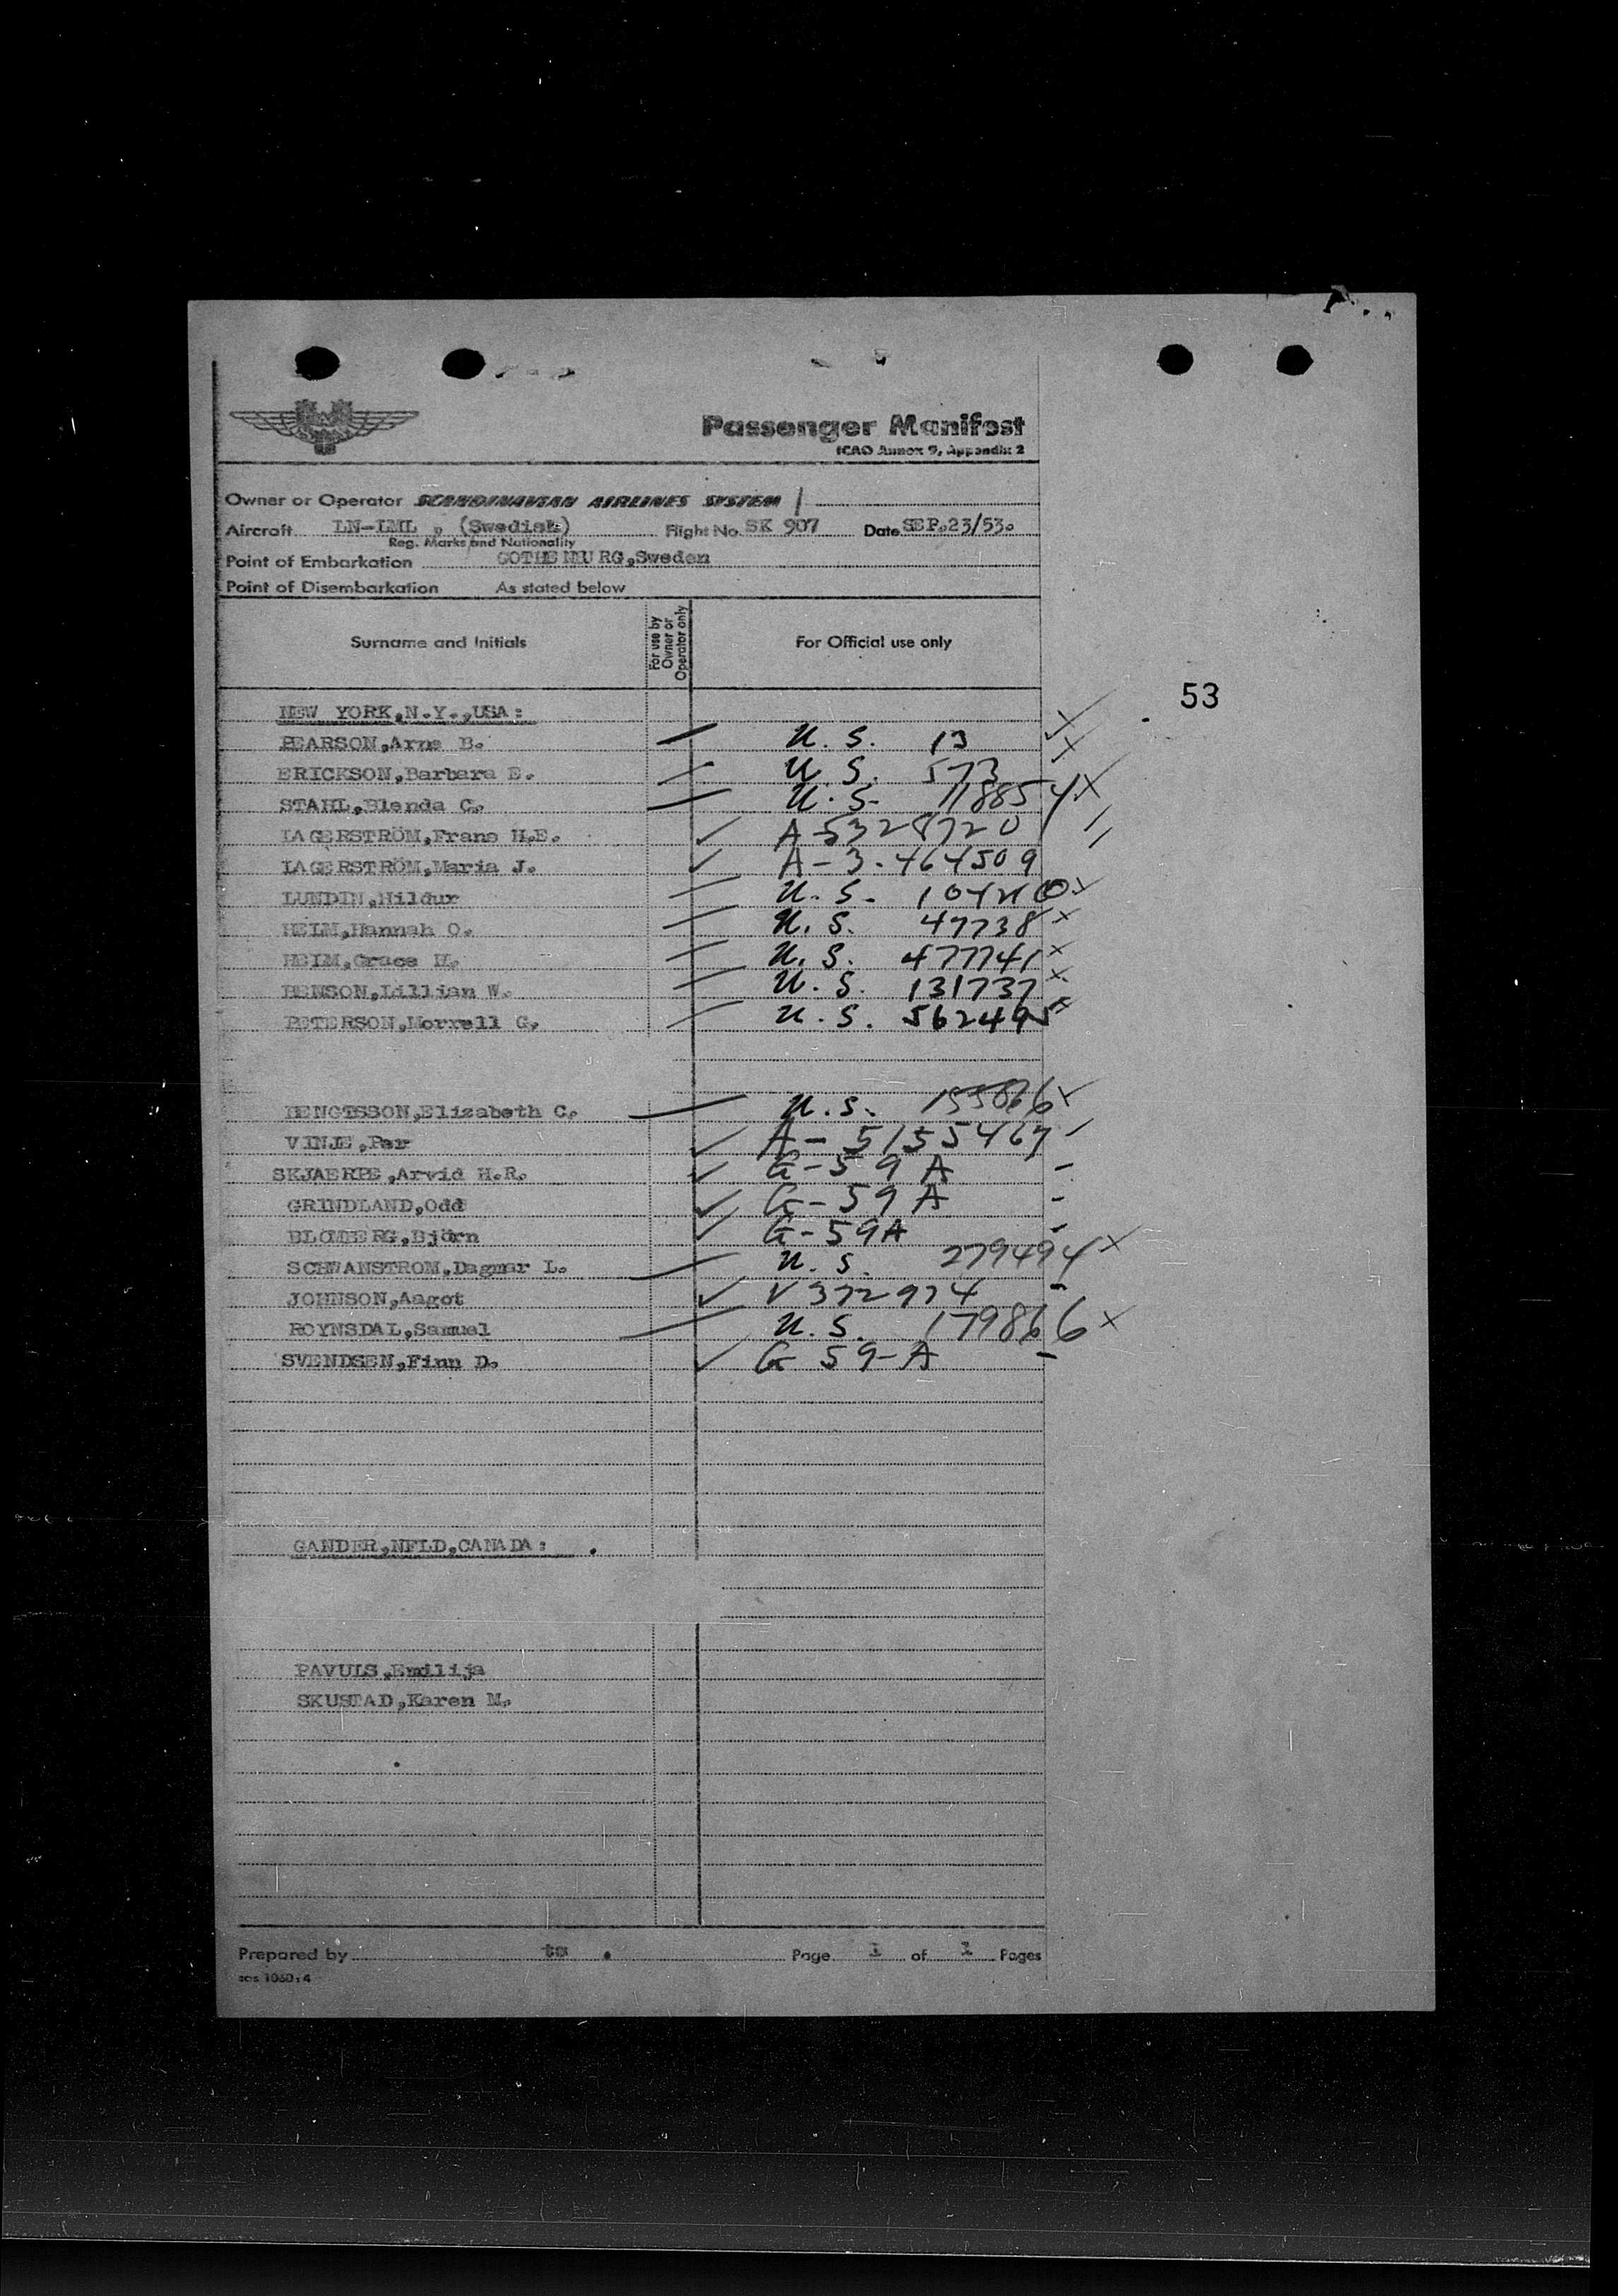 Passenger Manifest
ICAO Annex 9, Appendix 2
Owner or Operator SCANDINAVIAN AIRLINES SYSTEM
Aircraft LN-LML , (Swedish) Flight No. SK 907 Date SEP.23/53.
Reg. Marks and Nationality
Point of Embarkation GOTHENBURG,Sweden
Point of Disembarkation As stated below
Surname and Initials For use by Owner or Operator only For Official use only
53
NEW YORK,N.Y.,USA:
PEARSON,Arne B. U.S. 13
ERICKSON,Barbara E. U.S. 573
STAHL,Blenda C. U.S. 118854
LAGERSTRÖM,Frans H.E. A-5328720
LAGERSTRÖM,Maria J. A-3.464509
LUNDIN,Hildur U.S.
HEIM,Hannah O. U.S. 47738
HEIM,Grace H. U.S. 477741
BENSON,Lillian W. U.S. 131737
PETERSON,Morrell G. U.S. 562495
BENGTSSON,Elizabeth C. U.S.
VINJE,Per A-5155467
SKJAERPE,Arvid H.R. G-59 A
GRINDLAND,Odd G-59 A
BLOMBERG,Björn G-59A
SCHWANSTROM,Dagmar L. U.S. 279494
JOHNSON,Aagot V 372974
ROYNSDAL,Samuel U.S. 179866
SVENDSEN,Finn D. G 59-A
GANDER,NFLD,CANADA:
PAVULS,Emilija
SKUSTAD,Karen M.
Prepared by Page 1 of 1 Pages
sas 1060:4